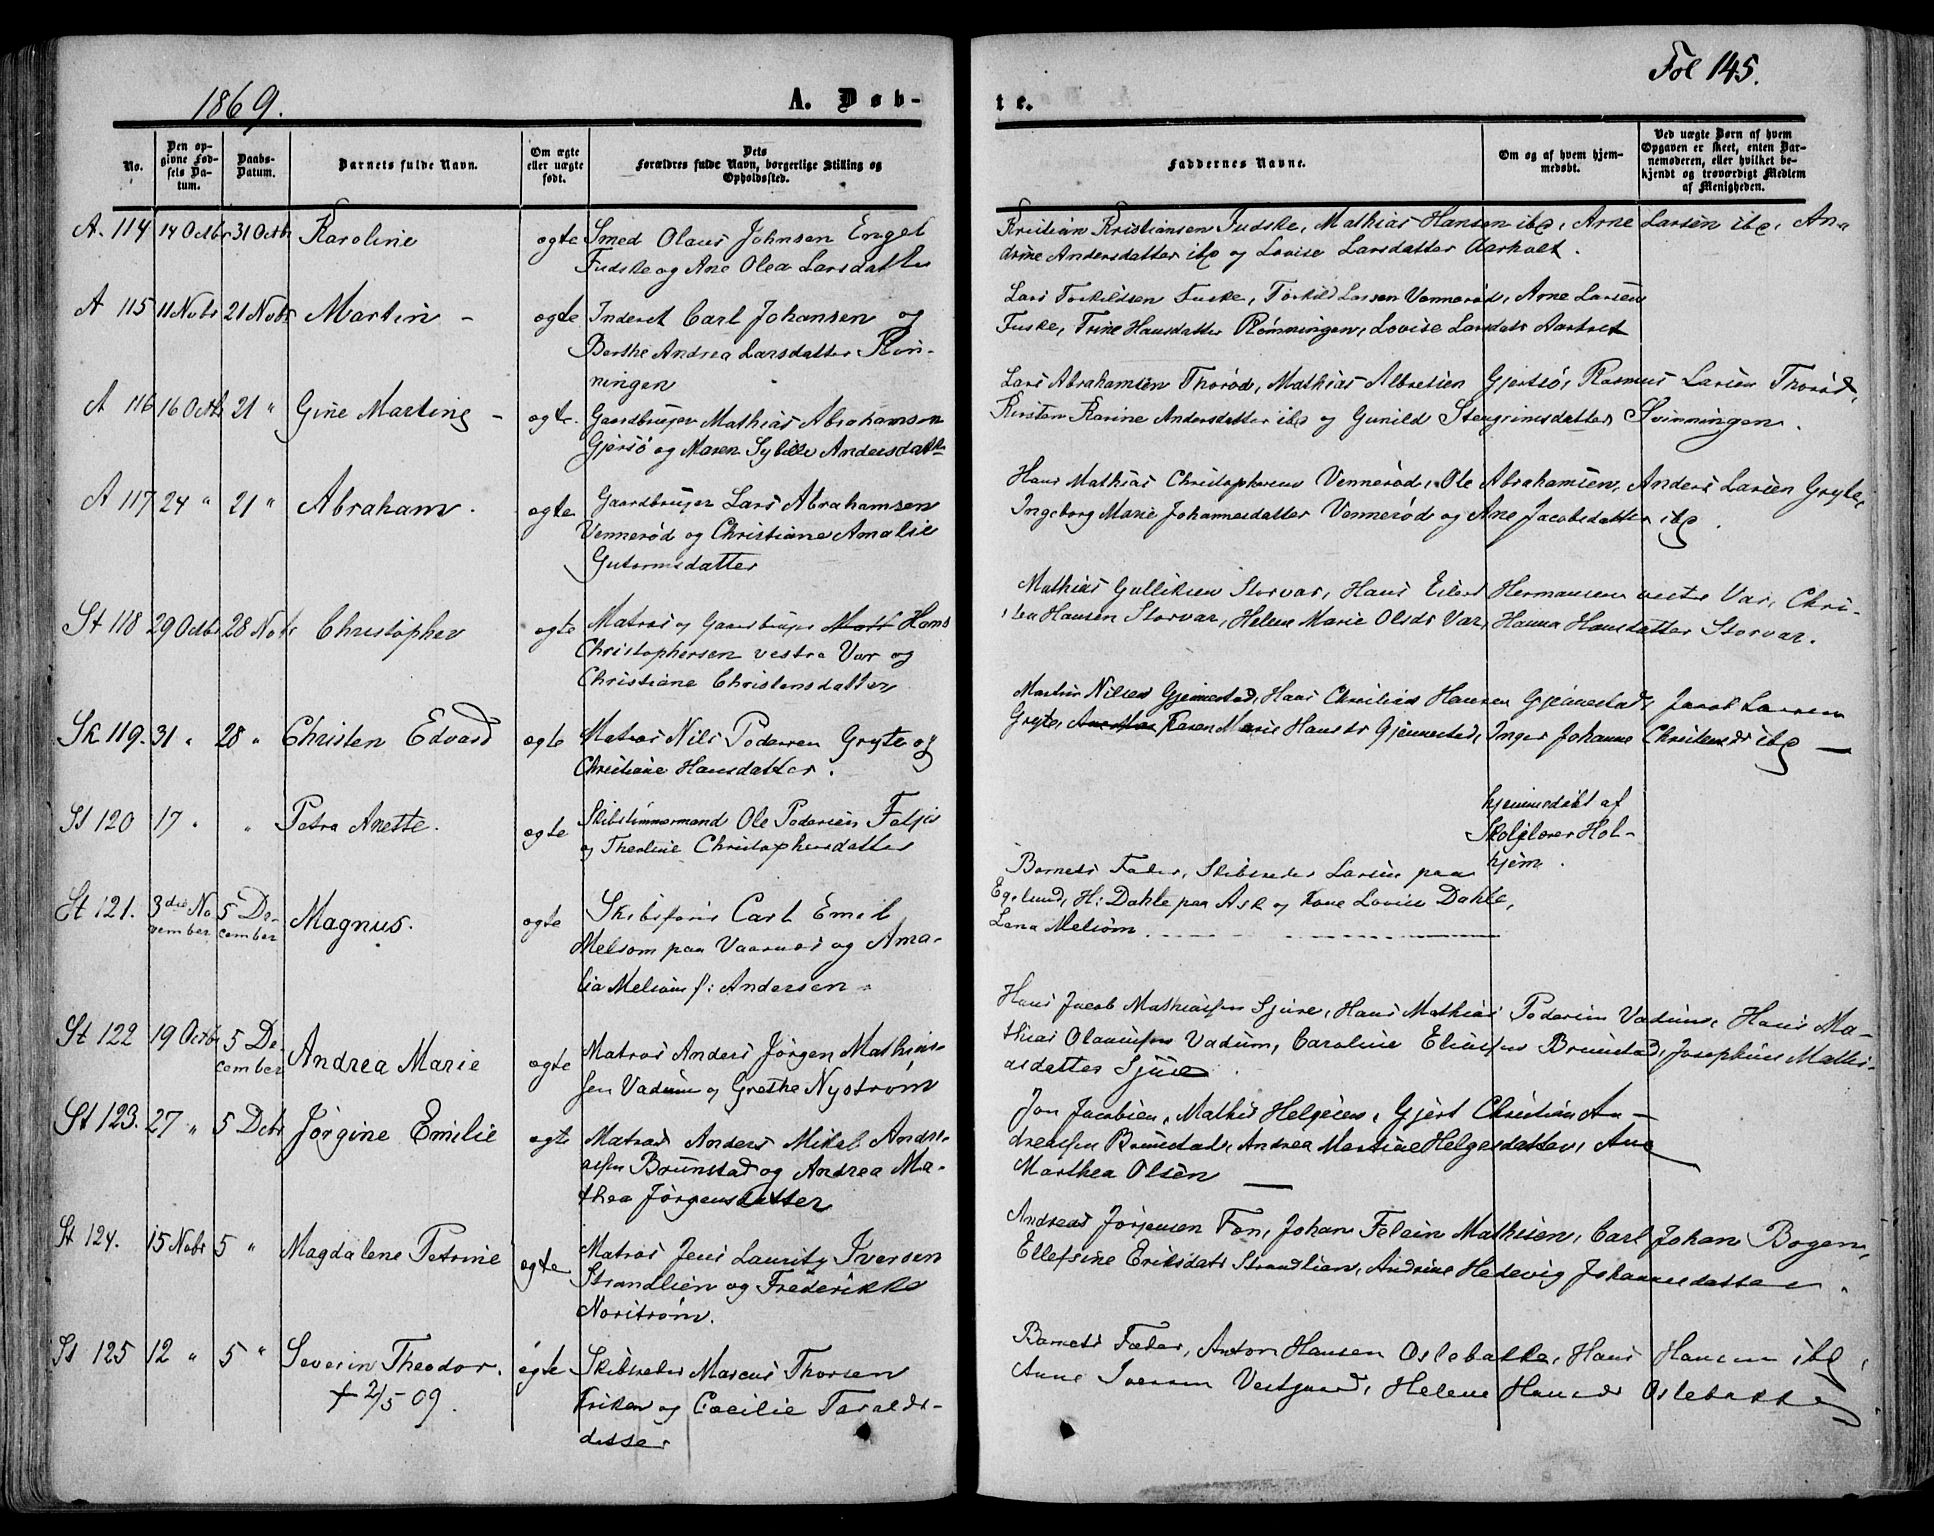 1869.
A. Døb-
No.
Den op-
givne Fød-
sels Da-
tum.
Daabs-
Datum.
Barnets fulde Navn.
Om ægte
eller uægte
født.
Dets
Forældres fulde Navn, borgerlige Stilling og
Opholdssted.
A. 114 14 Octbr 31 Octbr Karoline ægte Smed Olaus Johnsen Engel
Fudske og Ane Olea Larsdatter
A 115 11 Novbr 21 Novbr Martin - ægte Inderst Carl Johansen og
Berthe Andrea Larsdatter Røn-
ningen
A 116 16 Octb 21 " Gine Martine - ægte. Gaardbruger Mathias Abrahamsen
Gjersø og Maren Sybille Andersdatte
A 117 24 " 21 " Abraham. ægte Gaardbruger Lars Abrahamsen
Vennerød og Christiane Amalie
Gutormsdatter
St 118 29 Octbr 28 Novbr Christopher ægte Matros og Gaardbruger Hans
Christophersen vestra Var og
Christiane Christensdatter
Sk 119. 31 " 28 " Christen Edvard ægte Matros Nils Pedersen Gryte og
Christiane Hansdatter.
St 120 17 " " Petra Anette. ægte Skibstømmermand Ole Pedersen
og Theoline Christophersdatter
St 121. 3die No 5 De- Magnus. ægte Skibsfører Carl Emil
vember cember
Melsom paa Vaarnes og Ama-
lia Melsom f: Andersen
St 122 19 Octb 5 De- Andrea Marie ægte Matros Anders Jørgen Mathias-
cember
sen Vadum og Grethe Nystrøm
St 123. 27 " 5 Decbr Jørgine Emilie ægte Matros Anders Mikal Andre-
assen Brunstad og Andrea Ma-
thea Jørgensdatter
St 124. 15 Novbr 5 " Magdalene Petrine ægte Matros Jens Lauritz Iversen
Strandlien og Frederikke
Noristrøm.
St 125 12 " 5 " Severin Theodor. ægte Skibsreder Marcus Thorsen
+ 2/5 09.
og Cæcilie Taralds-
datter
Fol 145.
te.
Faddernes Navne.
Om og af hvem hjem-
medøbt.
Ved uægte Børn af hvem
Opgaven er skeet, enten Bar-
nemoderen, eller hvilket be-
kjendt og troværdigt Medlem
af Menigheden.
Kristian Kristiansen Fudske, Mathias Hansen ibd, Arne Larsen ibd, An-
drine Andersdatter ibd og Lovise Larsdatter Aarholt.
Lars Torkildsen Fuske, Torkild Larsen Vennerød, Arne Larsen
Fuske, Trine Hansdatter Rønningen, Lovise Larsdatr
Lars Abrahamsen Thorød, Mathias Albretsen Gjersø, Rasmus Larsen Thorød,
Kirsten Karine Andersdatter ibd og Gunild Stengrimsdatter Svinningen.
Hans Mathias Christophersen Vennerød, Ole Abrahamsen, Anders Larsen Gryte,
Ingeborg Marie Johannesdatter Vennerød og Ane Jacobsdatter ibd.
Mathias Gulliksen Storvar, Hans Eilert Hermansen vestre Var, Chri-
sten Hansen Storvar, Helene Marie Olsdr Var, Hanna Hansdatter Storvar.
Martin Nilsen Gjennestad, Hans Christian Hansen Gjennestad, Jacob Larsen
Gryte, Karen Marie Hansdr Gjennestad, Inger Johanne Christensdr ibd
hjemmedøbt af
Skolelærer Hol-
hjem.
Barnets Fader, Skibsreder Larsen paa
Egelund, H: Dahle paa Ask og Kone Lovise Dahle,
Lena Melsom
Hans Jacob Mathiassen Sjure, Hans Mathias Pedersen Vadum, Hans Ma-
thias Olaussen Vadum, Caroline Eliassen Brunstad, Josephine Mathi-
asdatter Sjure.
Jon Jacobsen, Mathis Helgesen, Gjert Christian An-
dreassen Brunstad, Andrea Martine Helgesdatter, Ane
Marthea Olsen
Andreas Jørgensen Fon, Johan Mathisen, Carl Johan Bogen,
Ellefsine Eriksdatr Strandlien, Andrine Hedevig Johannesdatter.
Barnets Fader, Anton Hansen Oslebakke, Hans Hansen ibd,
Anne Iversen Vestgaard, Helene Hansdr Oslebakke